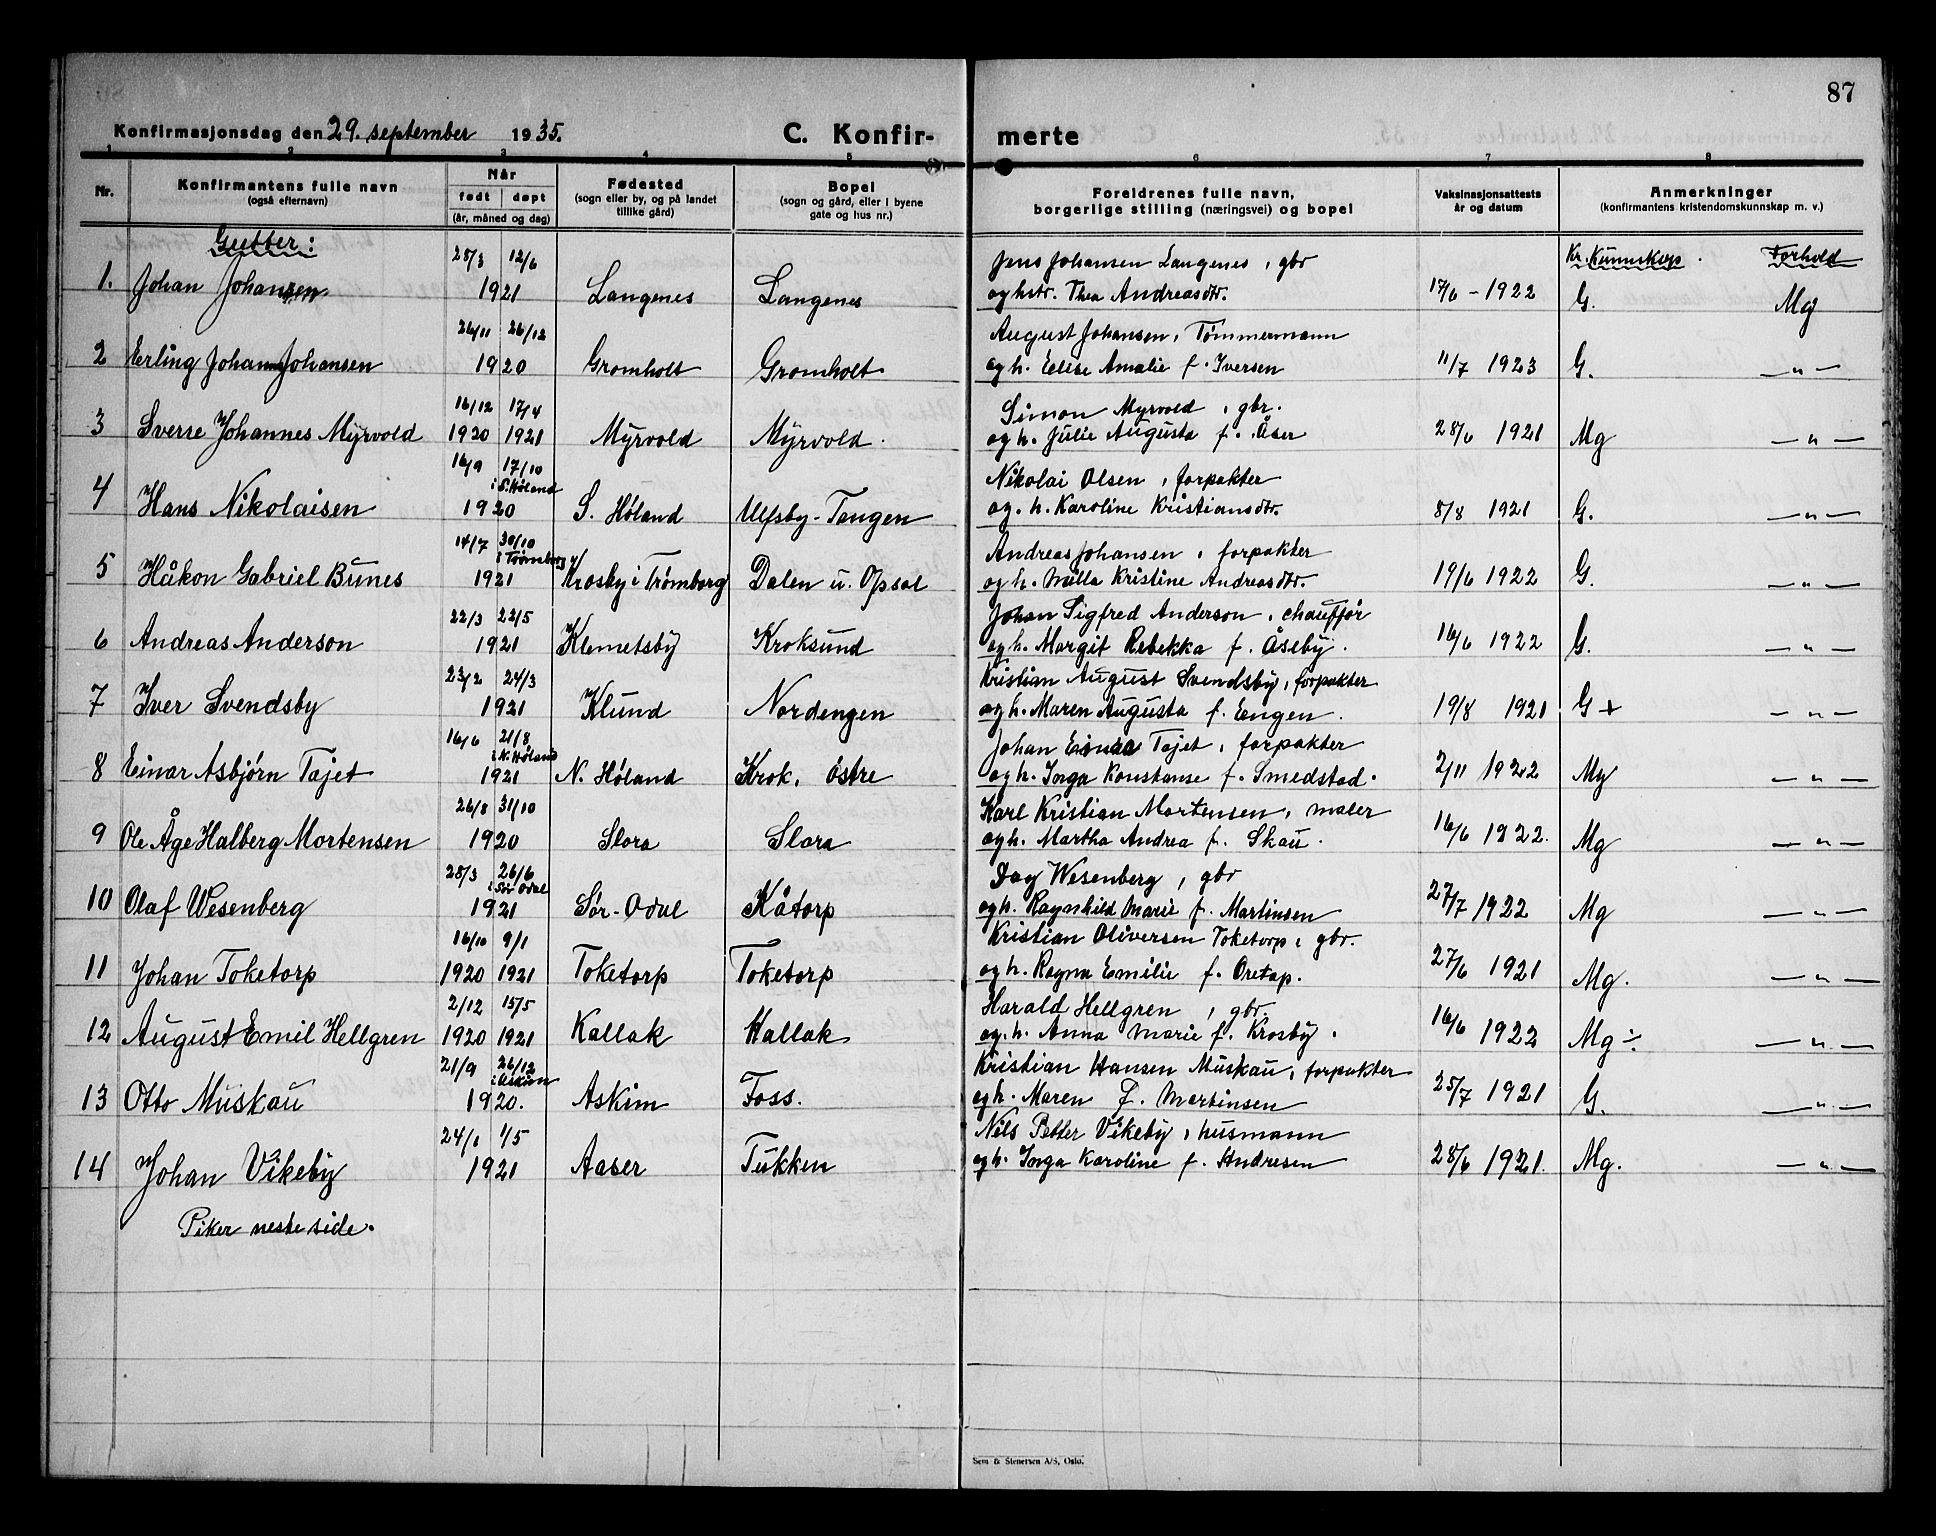 87
Konfirmasjonsdag den 29. september 1935.
C. Konfir-merte
1 2 3 4 5 6 7 8
Nr.
Konfirmantens fulle navn
(også efternavn)
Når
født døpt
(år, måned og dag)
Fødested
(sogn eller by, og på landet
tillike gård)
Bopel
(sogn og gård, eller i byene
gate og hus nr.)
Foreldrenes fulle navn,
borgerlige stilling (næringsvei) og bopel
Vaksinasjonsattests
år og datum
Anmerkninger
(konfirmantens kristendomskunnskap m. v.)
Gutter:
Kr. Kunnskap. Forhold
28/3 12/6 Jens Johansen Langenes, gbr
1. Johan Johansen 1921 Langenes Langenes og hstr. Thea Andreasdtr. 17/6 - 1922 G. Mg
26/11 26/12 August Johansen, Tømmermann
2 Erling Johan Johansen 1920 Gromholt Gromholt og h. Elise Amalie f. Iversen 11/7 1923 G. — " —
16/12 17/4 Simon Myrvold, gbr.
3 Sverre Johannes Myrvold 1920 1921 Myrvold Myrvold. og h. Julie Augusta f. Åser 28/6 1921 Mg — " —
16/9 17/10 i S. Høland Nikolai Olsen, forpakter
4 Hans Nikolaisen 1920 S. Høland Ulfsby-Tangen og. h. Karoline Kristiansdtr. 8/8 1921 G. — " —
14/7 30/10 i Trømborg Andreas Johansen, forpakter
5 Håkon Gabriel Bunes 1921 Krosby i Trømborg Dalen u. Opsal og h. Milla Kristine Andreasdtr. 19/6 1922 G. — " —
22/3 22/5 Johan Sigfred Anderson, chauffør
6 Andreas Anderson 1921 Klemetsby Kroksund og h. Margit Rebekka f. Åseby. 16/6 1922 G. — " —
23/2 24/3 Kristian August Svendsby, forpakter
7 Iver Svendsby 1921 Klund Nordengen og h. Maren Augusta f. Engen. 19/8 1921 G + — " —
16/6 21/8 i N. Høland Johan Einar Tajet, forpakter
8 Einar Asbjørn Tajet 1921 N. Høland Krok, østre og h. Inga Konstanse f. Smedstad. 2/11 1922 Mg — " —
26/8 31/10 Karl Kristian Mortensen, maler
9 Ole Åge Halberg Mortensen 1920 Slora Slora og h. Martha Andrea f. Skau. 16/6 1922. Mg — " —
28/3 26/6 i Sør Odal Dag Wesenberg, gbr
10 Olaf Wesenberg 1921 Sør-Odal Kåtorp og h. Ragnhild Marie f. Martinsen 27/7 1922 Mg — " —
16/10 9/1 Kristian Oliversen Toketorp, gbr.
11 Johan Toketorp 1920 1921 Toketorp Toketorp og h. Ragna Emilie f. Oretop. 27/6 1921 Mg. — " —
2/12 15/5 Harald Hellgren, gbr.
12 August Emil Hellgren 1920 1921 Kallak Kallak og. h. Anna Marie f. Krosby. 16/6 1922 Mg ÷ — " —
21/9 26/12 i Askim Kristian Hansen Muskau, forpakter
13 Otto Muskau 1920. Askim Foss. og h. Maren f. Martinsen 25/7 1921 G. — " —
24/1 1/5 Nils Petter Vikeby, husmann
14 Johan Vikeby 1921 Aaser Tukken og h. Inga Karoline f. Andresen 28/6 1921. Mg. — " —
Piker neste side.
Sem & Stenersen A/S, Oslo.